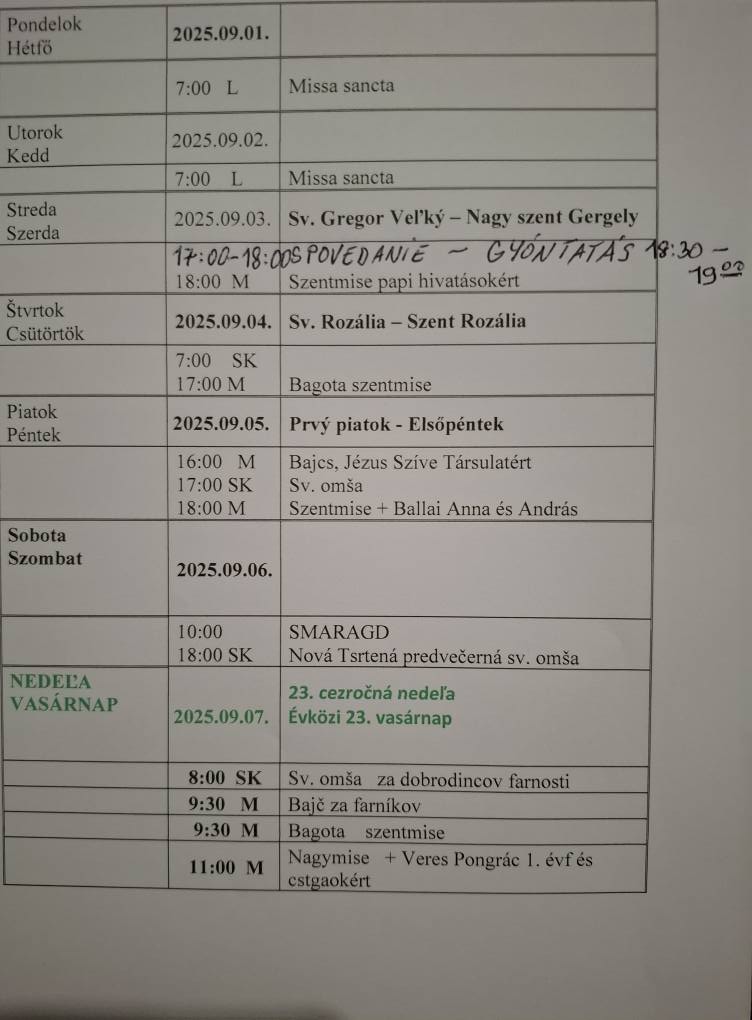 Pondelok
Hétfő
2025.09.01.
7:00 L Missa sancta
Utorok
Kedd
2025.09.02.
7:00 L Missa sancta
Streda
Szerda
2025.09.03. Sv. Gregor Veľký – Nagy szent Gergely
17:00-18:00 SPOVEDANIE – GYÓNTATÁS 18:30 –
1900
18:00 M Szentmise papi hivatásokért
Štvrtok
Csütörtök
2025.09.04. Sv. Rozália – Szent Rozália
7:00 SK
17:00 M Bagota szentmise
Piatok
Péntek
2025.09.05. Prvý piatok - Elsőpéntek
16:00 M Bajcs, Jézus Szíve Társulatért
17:00 SK Sv. omša
18:00 M Szentmise + Ballai Anna és András
Sobota
Szombat
2025.09.06.
10:00 SMARAGD
18:00 SK Nová Tsrtená predvečerná sv. omša
NEDEĽA
VASÁRNAP
2025.09.07.
23. cezročná nedeľa
Évközi 23. vasárnap
8:00 SK Sv. omša za dobrodincov farnosti
9:30 M Bajč za farníkov
9:30 M Bagota szentmise
11:00 M Nagymise + Veres Pongrác 1. évf és
cstgaokért